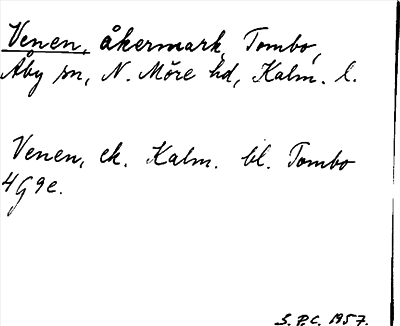 Venen, åkermark, Tombo,
Åby sn, N. Möre hd, Kalm. l.
Venen, ek. Kalm. bl. Tombo
4G9e.
S.P.C. 1957.